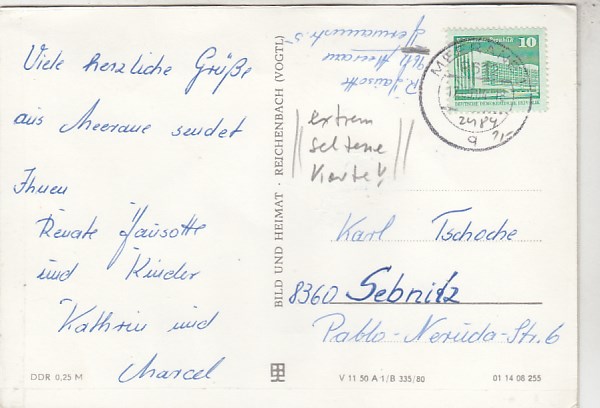 Viele herzliche Grüße
aus Meerane sendet
Ihnen
Renate Jausotte
und Kinder
Kathrin und
Marcel
DDR 0,25 M
BILD UND HEIMAT · REICHENBACH (VOGTL)
R. Jausotte
Meerane
10
MEERANE
extrem
seltene
Karte!
Karl Tschoche
8360 Sebnitz
Pablo-Neruda-Str. 6
V 11 50 A 1/B 335/80
01 14 08 255